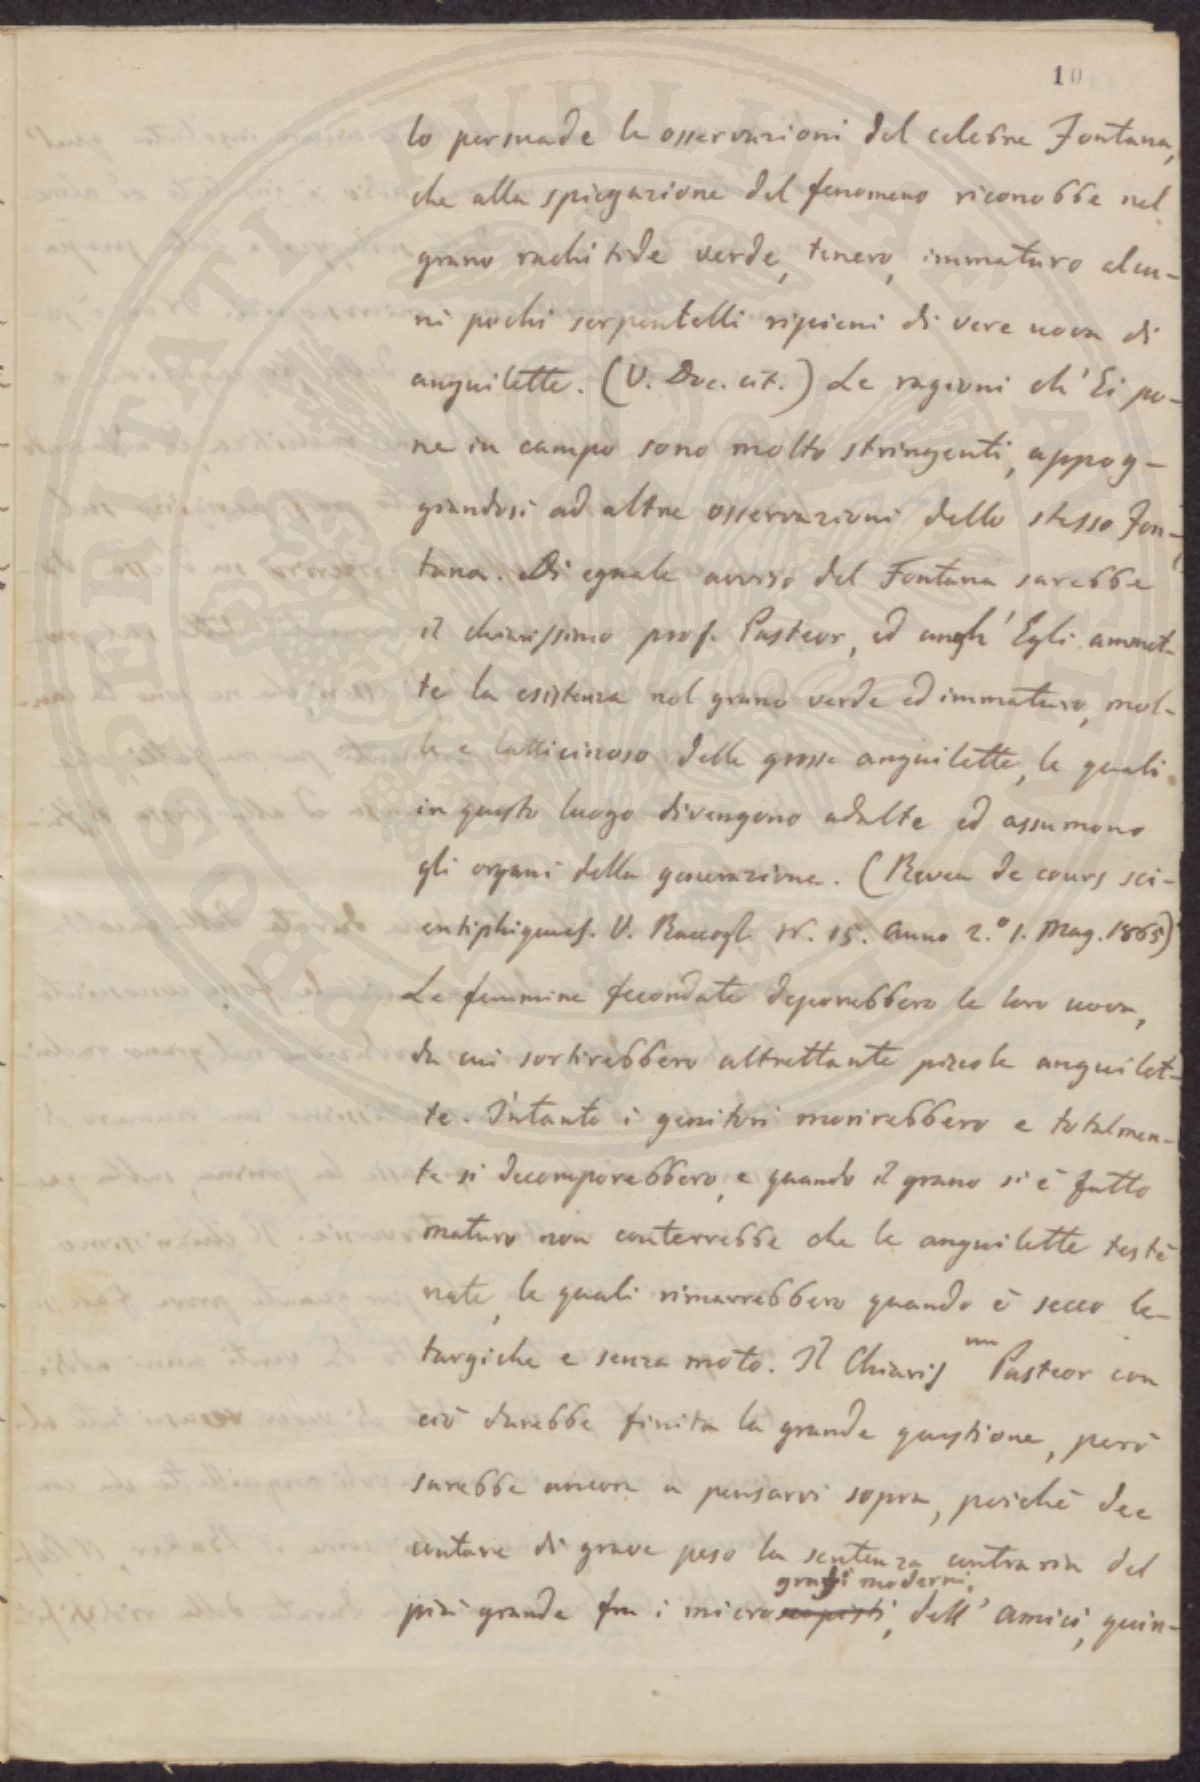 10
lo persuade le osservazioni del celebre Fontana,
che alla spiegazione del fenomeno riconobbe nel
grano rachitide verde, tenero, immaturo alcu-
ni pochi serpentelli ripieni di vere uova di
anguilette. (V. Doc. cit.) Le ragioni ch' Ei po-
ne in campo sono molto stringenti, appog-
giandosi ad altre osservazioni dello stesso Fon-
tana. Di eguale avviso del Fontana sarebbe
il chiarissimo prof. Pasteor, ed anch' Egli ammet-
te la esistenza nel grano verde ed immaturo, mol-
le e latticinoso delle grosse anguilette, le quali
in questo luogo divengono adulte ed assumono
gli organi della generazione. (Revea de cours sci-
entiphiques. V. Raccogl. N. 15. Anno 2.º 1. Mag. 1865)
Le femmine fecondate deporebbero le loro uova,
da cui sortirebbero altrettante piccole anguilet-
te. Intanto i genitori morirebbero e totalmen-
te si decomporebbero, e quando il grano si è fatto
maturo non conterrebbe che le anguilette testè
nate, le quali rimarrebbero quando è secco le-
targiche e senza moto. Il Chiaris mo Pasteor con
ciò darebbe finita la grande questione, però
sarebbe ancora a pensarvi sopra, poichè dee
contare di grave peso la sentenza contraria del
grafi moderni,
più grande fra i microscopisti, dell' Amici, quin-
PROSPERITATI PUBLICAE